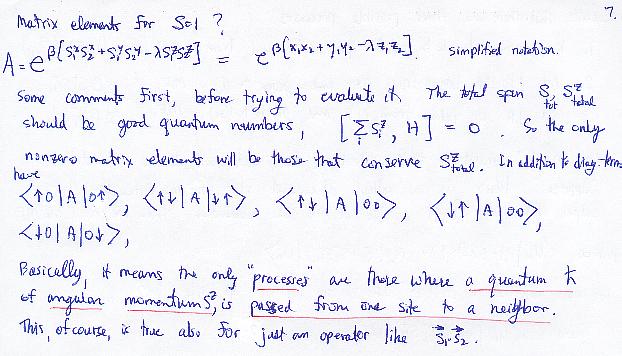 7.
Matrix elements for S=1 ?
A = e^{β[S₁ˣS₂ˣ + S₁ʸS₂ʸ - λS₁ᶻS₂ᶻ]} = e^{β[x₁x₂ + y₁y₂ - λz₁z₂]}. simplified notation.
Some comments first, before trying to evaluate it. The total spin S_tot, Sᶻ_total
should be good quantum numbers, [∑ᵢSᵢᶻ, H] = 0. So the only
nonzero matrix elements will be those that conserve Sᶻ_total. In addition to diag-terms
have
⟨↑0|A|0↑⟩, ⟨↑↓|A|↓↑⟩, ⟨↑↓|A|00⟩, ⟨↓↑|A|00⟩,
⟨↓0|A|0↓⟩,
Basically, it means the only "processes" are those where a quantum ħ
of angular momentum Sᶻ, is passed from one site to a neighbor.
This, of course, is true also for just an operator like S⃗₁·S⃗₂.